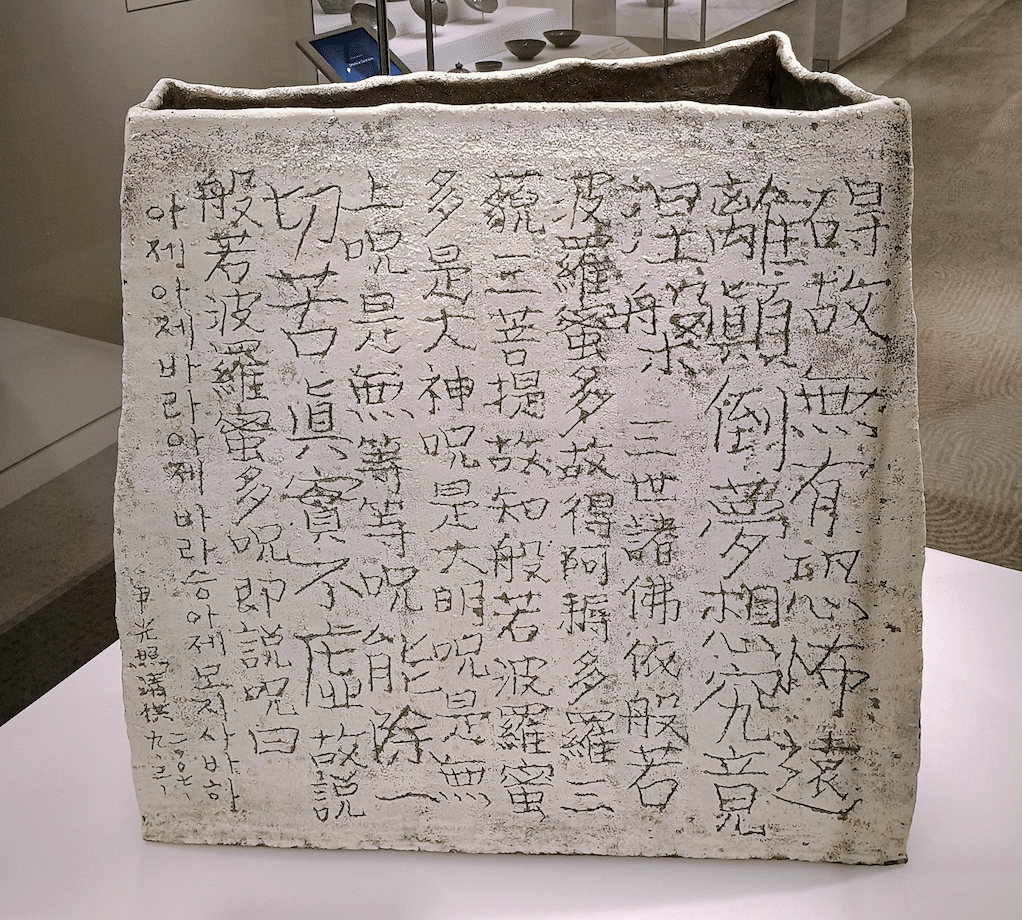 碍故無有恐怖遠
離顚倒夢想究竟
涅槃三世諸佛依般若
波羅蜜多故得阿耨多羅三
藐三菩提故知般若波羅蜜
多是大神呪是大明呪是無
上呪是無等等呪能除一
切苦眞實不虛故説
般若波羅蜜多呪即説呪曰
아제아제바라아제바라승아제모지사바하
尹光照